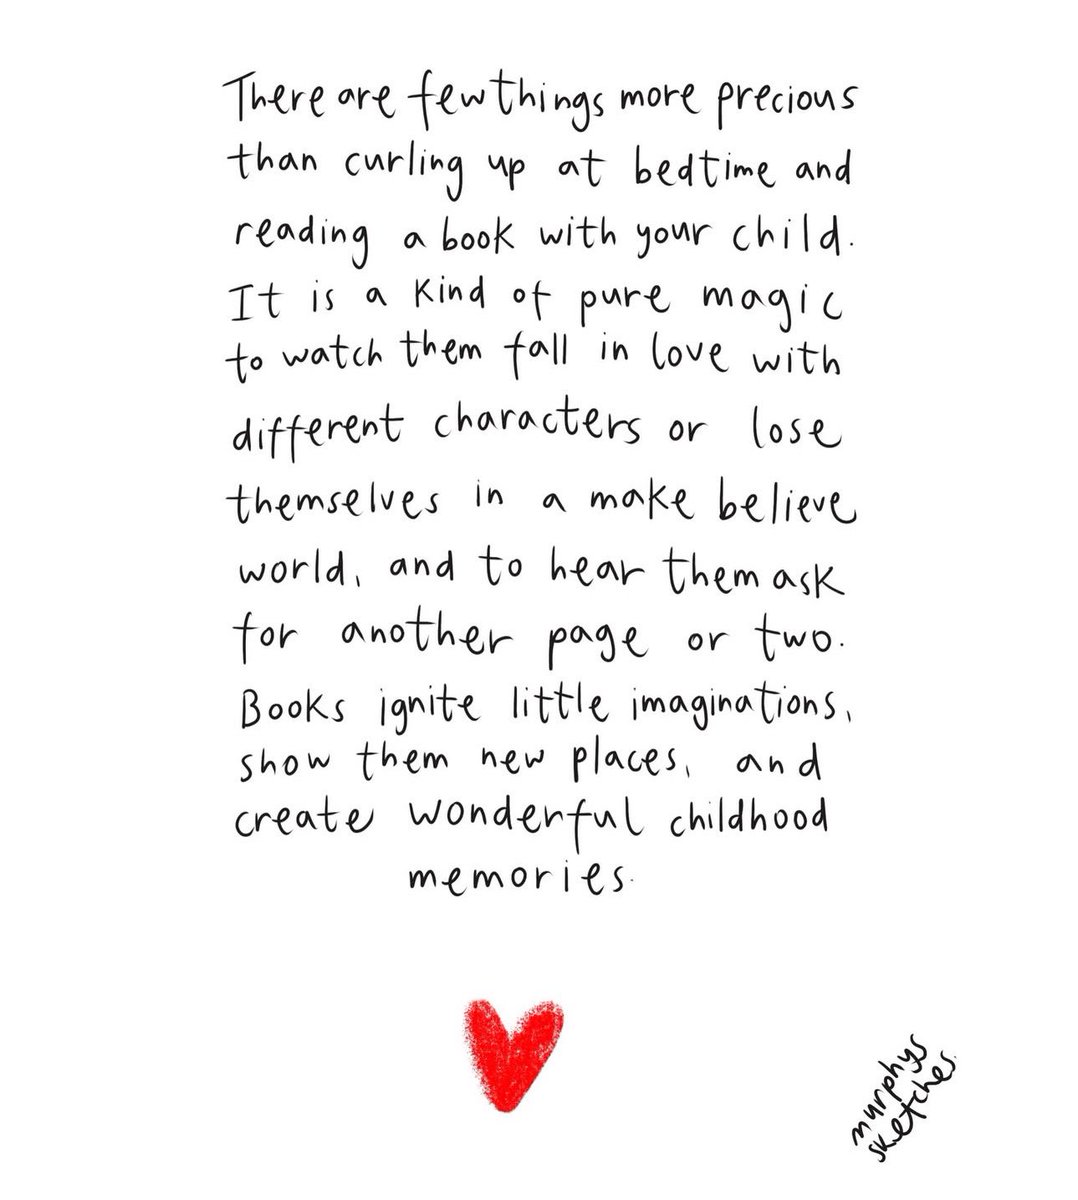 There are few things more precious
than curling up at bedtime and
reading a book with your child.
It is a kind of pure magic
to watch them fall in love with
different characters or lose
themselves in a make believe
world, and to hear them ask
for another page or two.
Books ignite little imaginations,
show them new places, and
create wonderful childhood
memories.
murphys
sketches.